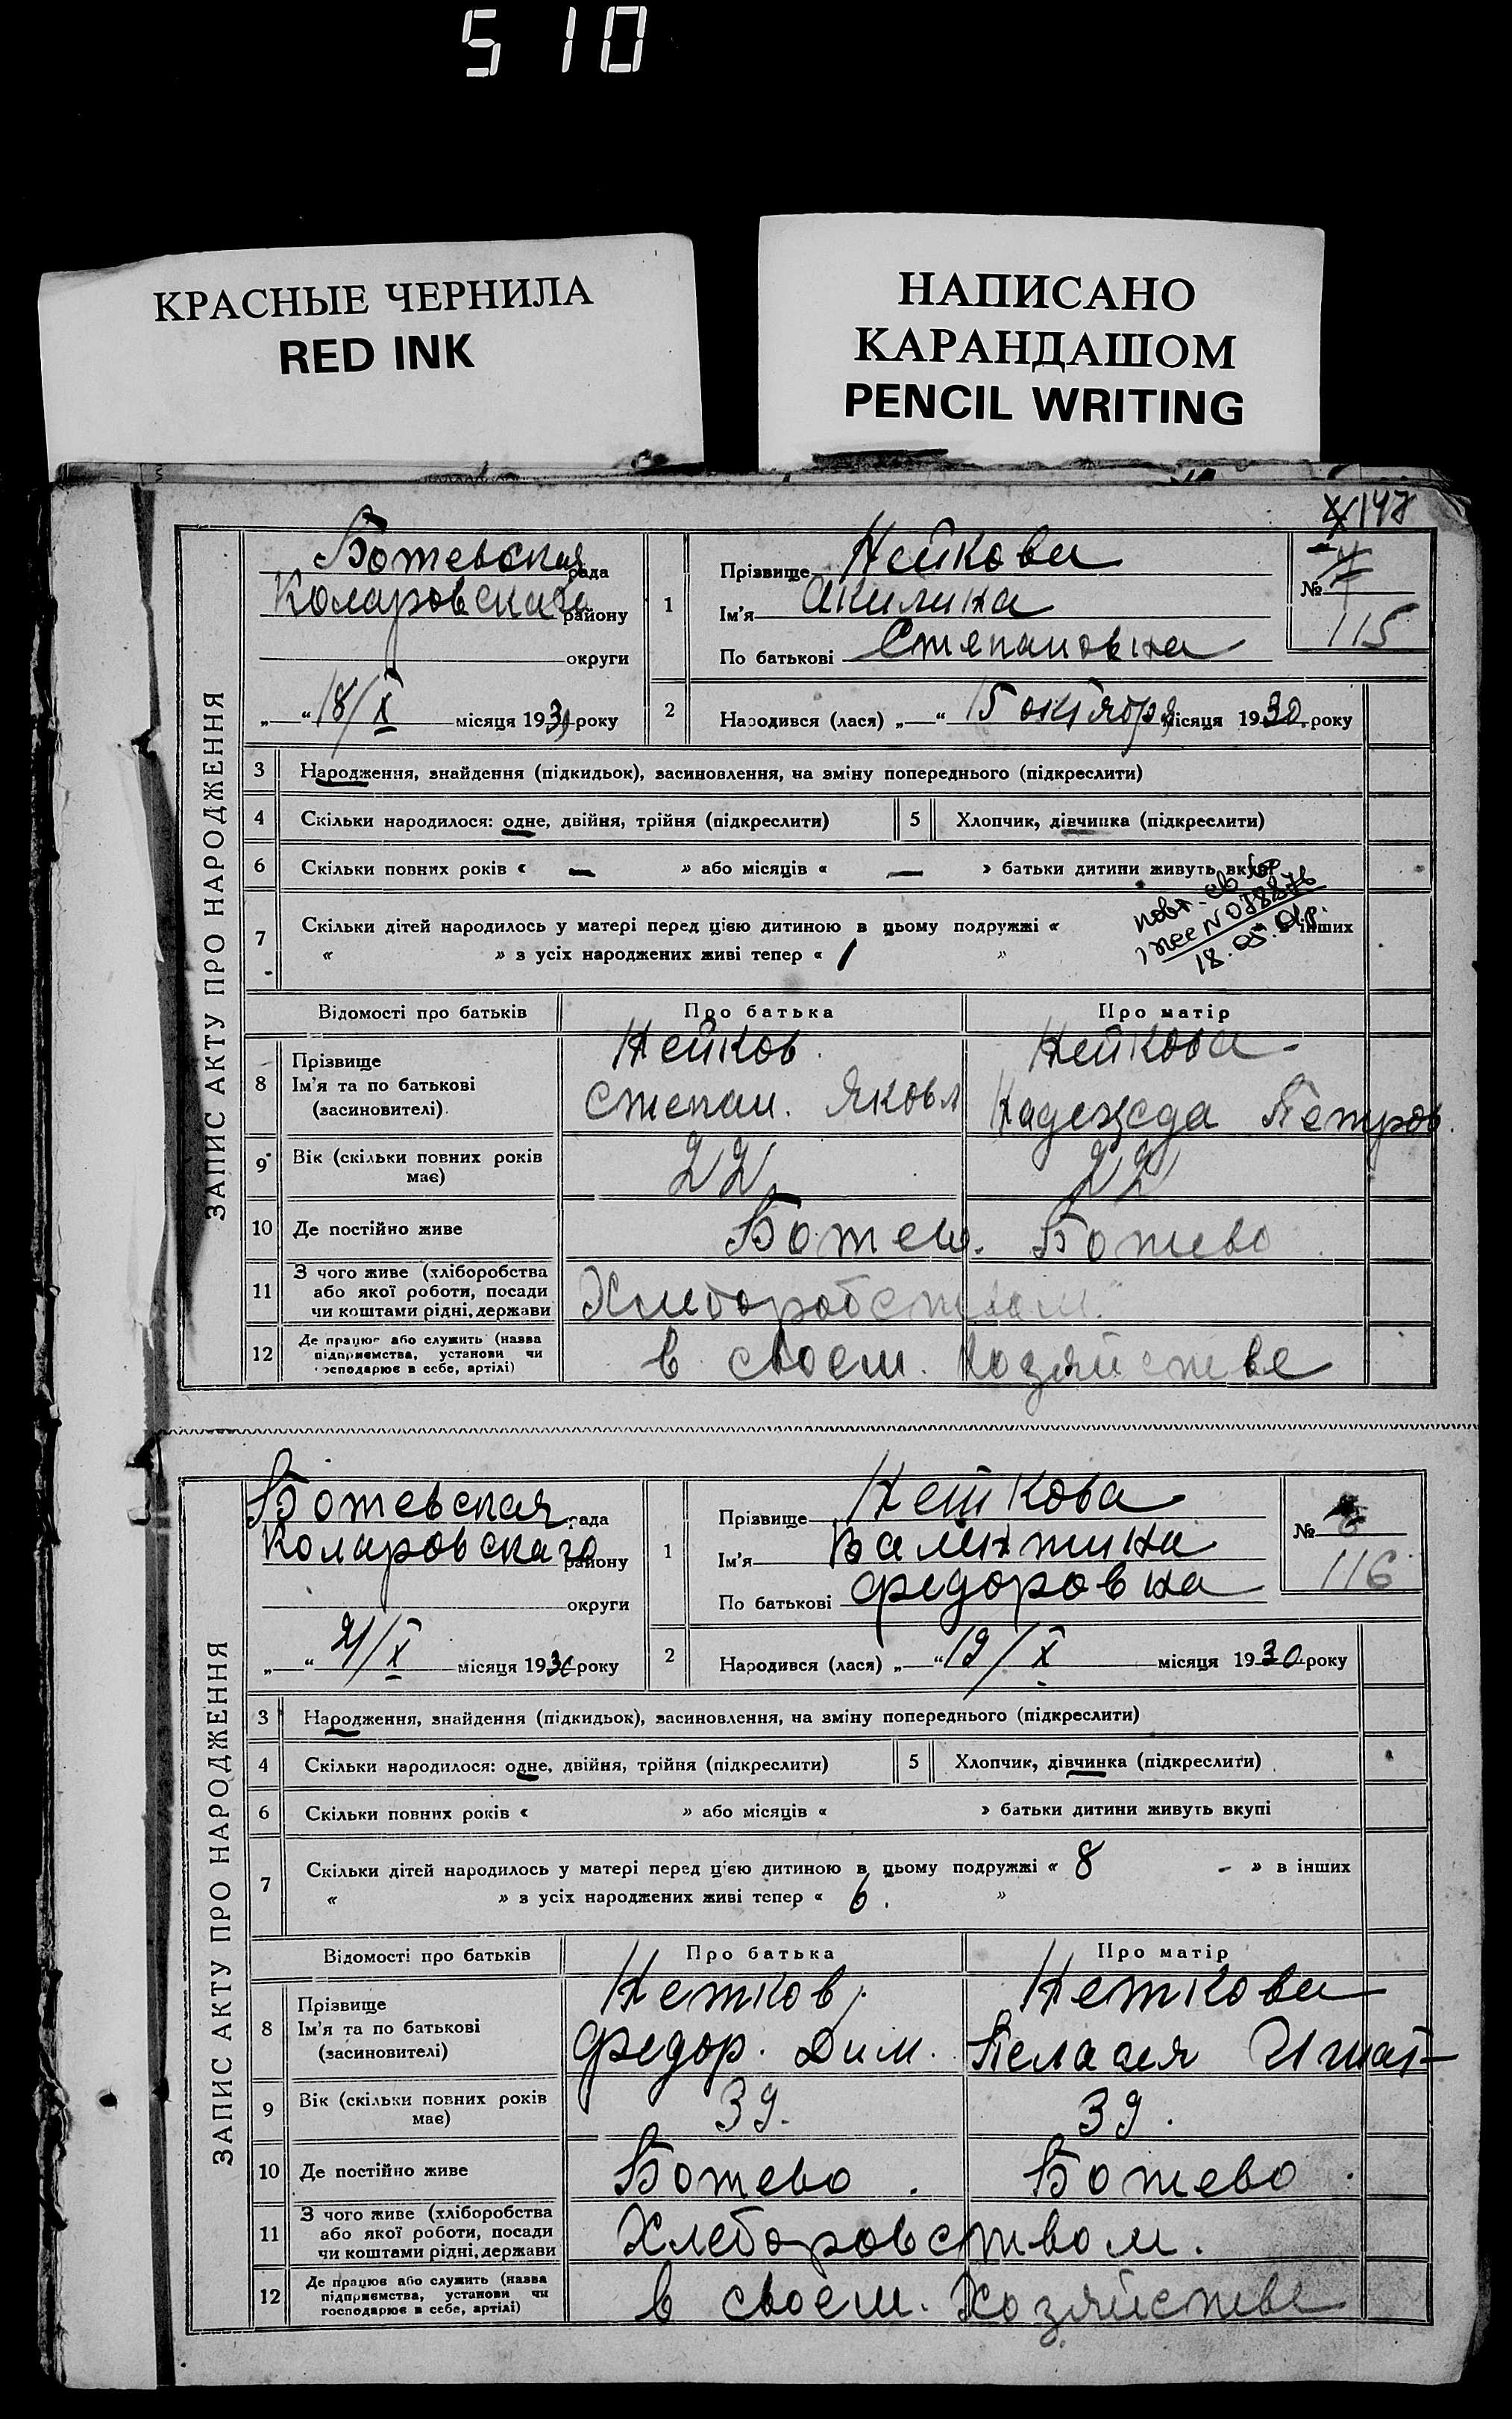 510
КРАСНЫЕ ЧЕРНИЛА
RED INK
НАПИСАНО
КАРАНДАШОМ
PENCIL WRITING
147
ЗАПИС АКТУ ПРО НАРОДЖЕННЯ
Божевская рада
Коларовскаго району
округи
„ “ 18/X місяця 1930 року
1
Прізвище Нейкова
Ім'я Акилина
По батькові Степановна
№
115
2
Народився (лася) „ “ 15 октября місяця 1930 року
3 Народження, знайдення (підкидьок), засиновлення, на зміну попереднього (підкреслити)
4 Скільки народилося: одне, двійня, трійня (підкреслити) 5 Хлопчик, дівчинка (підкреслити)
6 Скільки повних років « — » або місяців « — » батьки дитини живуть вкупі
7 Скільки дітей народилось у матері перед цією дитиною в цьому подружжі « в інших
« » з усіх народжених живі тепер « 1 »
повт. св во
18.05.
Відомості про батьків Про батька Про матір
8 Прізвище
Ім'я та по батькові
(засиновителі)
Нейков Нейкова
Степан. Яковл Надежда Петров
9 Вік (скільки повних років має) 22 22
10 Де постійно живе Божев. Божево
11 З чого живе (хліборобства
або якої роботи, посади
чи коштами рідні, держави
Хлеборобством.
12 Де працює або служить (назва
підприємства, установи чи
господарює в себе, артілі)
в своем. хозяйстве
ЗАПИС АКТУ ПРО НАРОДЖЕННЯ
Божевская рада
Коларовскаго району
округи
„ “ 21/X місяця 1930 року
1
Прізвище Неткова
Ім'я Валинтина
По батькові Федоровна
№
116
2
Народився (лася) „ “ 19/X місяця 1930 року
3 Народження, знайдення (підкидьок), засиновлення, на зміну попереднього (підкреслити)
4 Скільки народилося: одне, двійня, трійня (підкреслити) 5 Хлопчик, дівчинка (підкреслити)
6 Скільки повних років « » або місяців « » батьки дитини живуть вкупі
7 Скільки дітей народилось у матері перед цією дитиною в цьому подружжі « 8 - » в інших
« » з усіх народжених живі тепер « 6. »
Відомості про батьків Про батька Про матір
8 Прізвище
Ім'я та по батькові
(засиновителі)
Нетков Неткова
Федор. Дим. Пелагея Игнат
9 Вік (скільки повних років має) 39. 39.
10 Де постійно живе Божево. Божево.
11 З чого живе (хліборобства
або якої роботи, посади
чи коштами рідні, держави
Хлеборовством.
12 Де працює або служить (назва
підприємства, установи чи
господарює в себе, артілі)
в своем. Хозяйстве